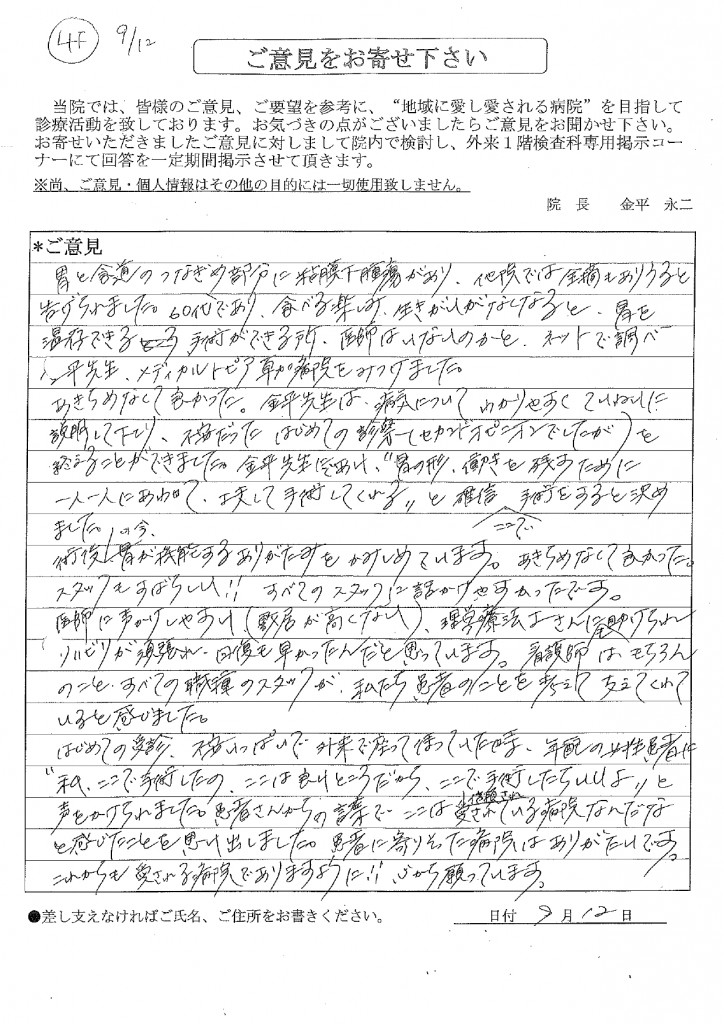 4F 9/12
ご意見をお寄せ下さい
当院では、皆様のご意見、ご要望を参考に、“地域に愛し愛される病院”を目指して
診療活動を致しております。お気づきの点がございましたらご意見をお聞かせ下さい。
お寄せいただきましたご意見に対しまして院内で検討し、外来1階検査科専用掲示コー
ナーにて回答を一定期間掲示させて頂きます。
※尚、ご意見・個人情報はその他の目的には一切使用致しません。
院 長 金平 永二
*ご意見
胃と食道のつなぎめ部分に粘膜下腫瘍があり、他院では全摘もありうると
告げられました。60代であり、食べる楽しみ、生きがいがなくなると、胃を
温存できる手術ができる所、医師はいないのかと、ネットで調べ
金平先生、メディカルトピア草加病院をみつけました。
あきらめなくて良かった。金平先生は、病気についてわかりやすくていねいに
説明して下さり、不安だったはじめての診察(セカンドオピニオンでしたが)を
終えることができました。金平先生にであい、“胃の形、働きを残すために
一人一人にあわせて、工夫して手術してくれる”と確信 ここで 手術をすると決め
ました。
術後の今、胃が機能するありがたみをかみしめています。あきらめなくて良かった。
スタッフもすばらしい!! すべてのスタッフに話かけやすかったです。
医師に声かけしやすい(敷居が高くない)、理学療法士さんに助けられ
リハビリが頑張れ、回復も早かったんだと思っています。看護師はもちろん
のこと、すべての職種のスタッフが、私たち患者のことを考えて支えてくれて
いると感じました。
はじめての受診、不安いっぱいで外来で座って待っていた時、年配の女性患者に
“私、ここで手術したの、ここは良いところだから、ここで手術したらいいよ”と
声をかけられました。患者さんからの言葉でここは信頼され愛されている病院なんだな
と感じたことを思い出しました。患者に寄りそった病院はありがたいです。
これからも愛される病院でありますように!! 心から願っています。
●差し支えなければご氏名、ご住所をお書きください。 日付 9月12日